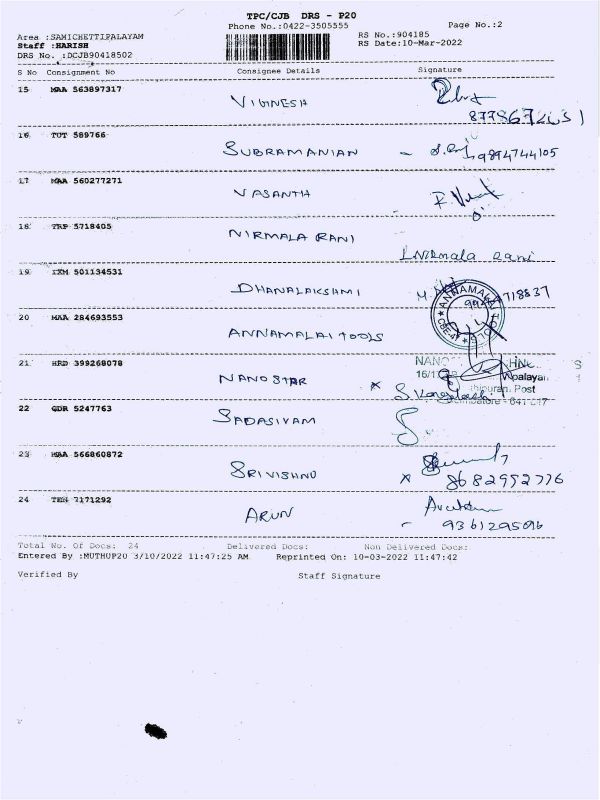 TPC/CJB DRS - P20
Phone No.:0422-3505555
Page No.:2
Area :SAMICHETTIPALAYAM
RS No.:904185
Staff :HARISH
RS Date:10-Mar-2022
DRS No. :DCJB90418502
S No Consignment No Consignee Details Signature
15 MAA 563897317
VIGINESH
16 TUT 589766
SUBRAMANIAN - 9894744105
17 MAA 560277271
VASANTH
18 TRP 5718405
NIRMALA RANI
Nirmala Rani
19 IXM 501134531
DHANALAKSHMI
20 MAA 284693553
ANNAMALAI TOOLS
ANNAMALAI TOOLS
21 HRD 399268078
NANO STAR x
NANO
Post
22 GDR 5247763
SADASIVAM
23 MAA 566860872
SRI VISHNU x 8682952776
24 TEN 7171292
ARUN - 9361295096
Total No. Of Docs: 24 Delivered Docs: Non Delivered Docs:
Entered By :MUTHUP20 3/10/2022 11:47:25 AM Reprinted On: 10-03-2022 11:47:42
Verified By Staff Signature